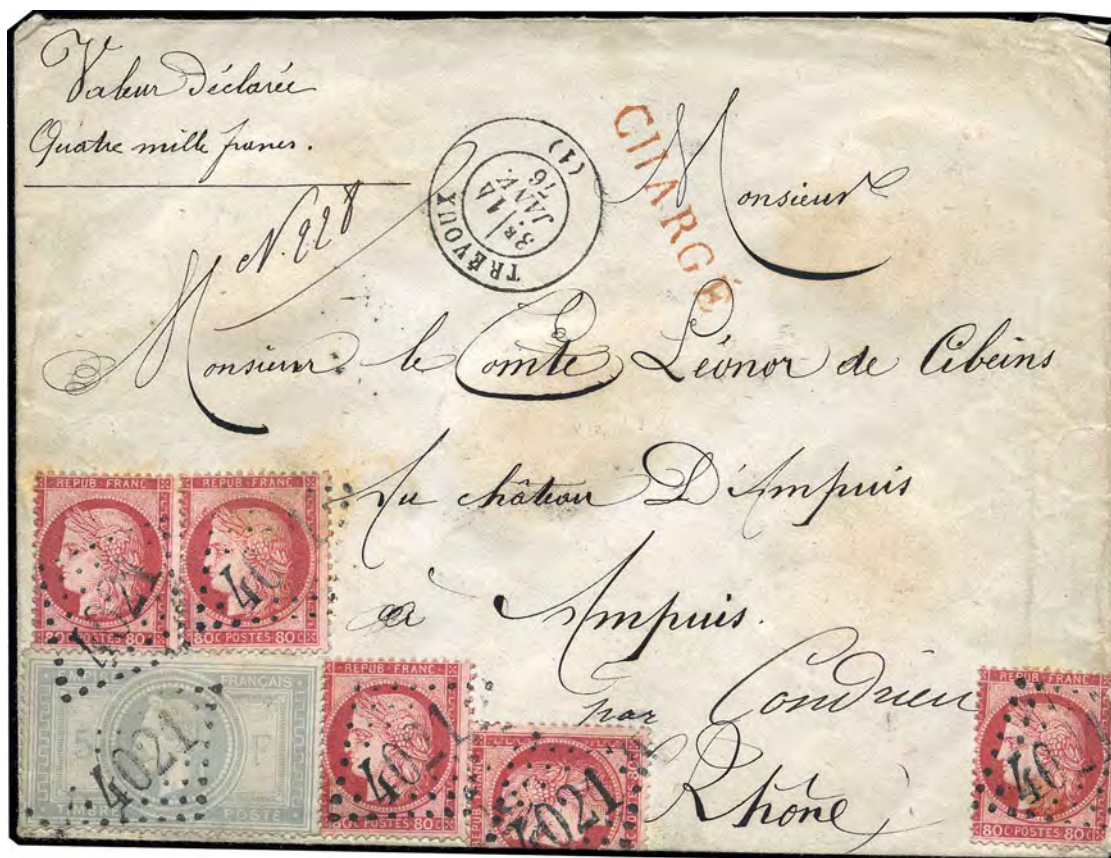 Valeur Déclarée
Quatre mille francs.
N. 228
TRÉVOUX
3E 14
JANV.
76
(1)
CHARGÉ
Monsieur
Monsieur le Comte Léonor de Cibeins
Au château D'Ampuis
a Ampuis.
par Condrieu
Rhône
REPUB·FRANC
80C POSTES 80C
4021
REPUB·FRANC
80C POSTES 80C
FRANÇAIS
5 F
POSTE
4021
REPUB·FRANC
80C POSTES 80C
4021
REPUB·FRANC
80C
4021
REPUB·FRANC
80C POSTES 80C